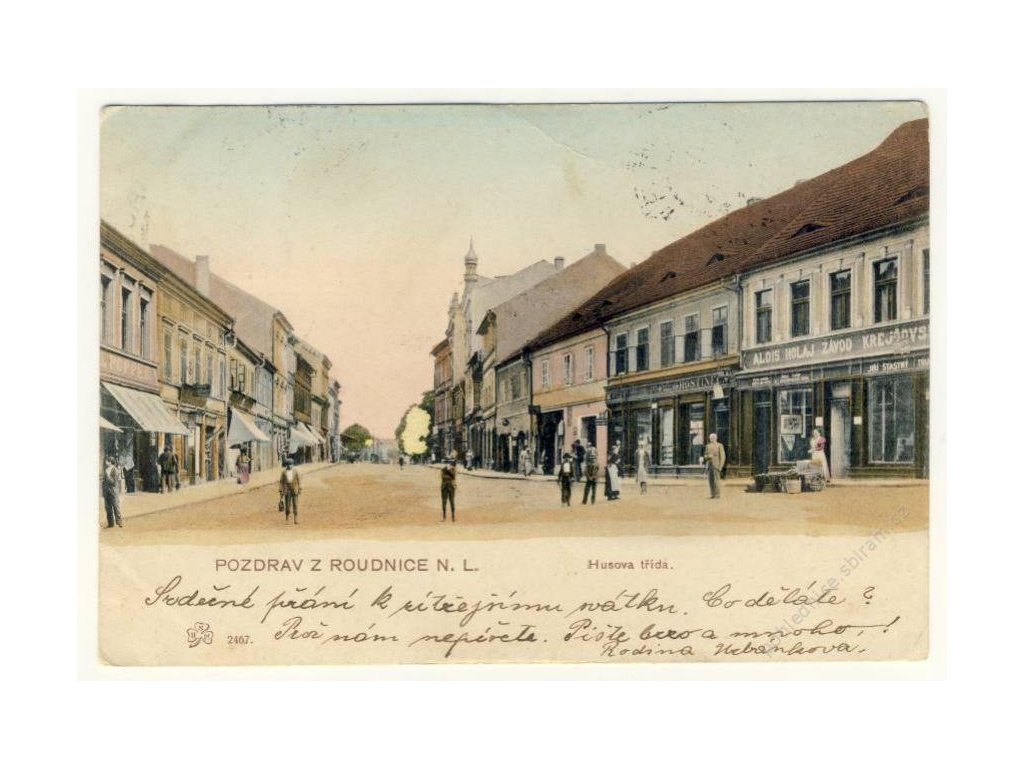 ALOIS HOLAJ ZÁVOD KREJČOVS
JIŘÍ ŠŤASTNÝ
HOSTINEC
POZDRAV Z ROUDNICE N. L.
Husova třída.
Srdečné přání k zítřejšímu svátku. Co děláte?
Proč nám nepíšete. Pište brzo a mnoho.!
Rodina Urbánkova.
2467.
pohlednice.sbiram.cz